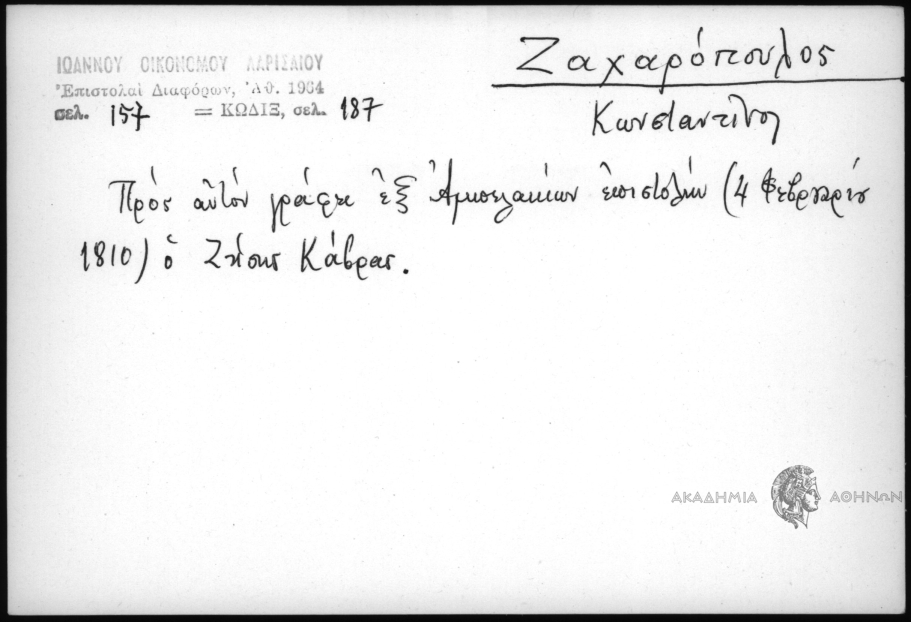 ΙΩΑΝΝΟΥ ΟΙΚΟΝΟΜΟΥ ΛΑΡΙΣΑΙΟΥ
Ἐπιστολαὶ Διαφόρων, Ἀθ. 1964
σελ. 157 = ΚΩΔΙΞ, σελ. 187
Ζαχαρόπουλος
Κωνσταντῖνος
Πρὸς αὐτὸν γράφει ἐξ Ἀμπελακίων ἐπιστολὴν (4 Φεβρουαρίου
1810) ὁ Ζήσης Κάβρας.
ΑΚΑΔΗΜΙΑ ΑΘΗΝΩΝ